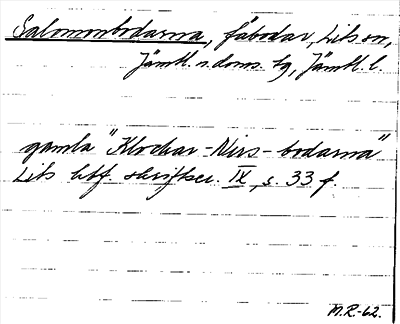 Salomonbodarna, fäbodar, Lits sn,
Jämtl. n. doms. tg, Jämtl. l.
gamla "Klockar-Nirs-bodarna"
Lits hbf. skriftser. IX, s. 33 f.
M.R.-62.